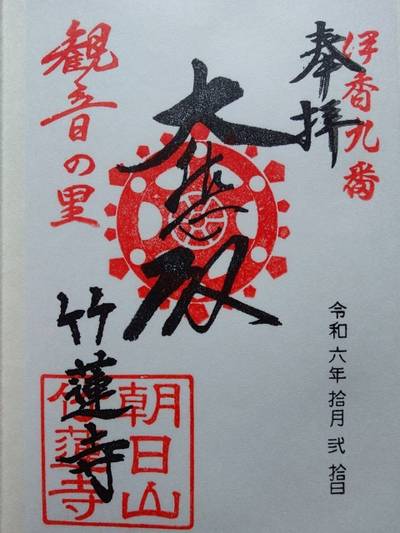 伊香九番
奉拝
大悲殿
観音の里
竹蓮寺
令和六年拾月弐拾日
朝日山
蓮寺